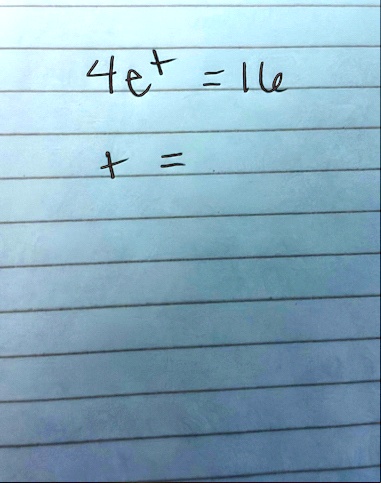 4eᵗ = 16
t =